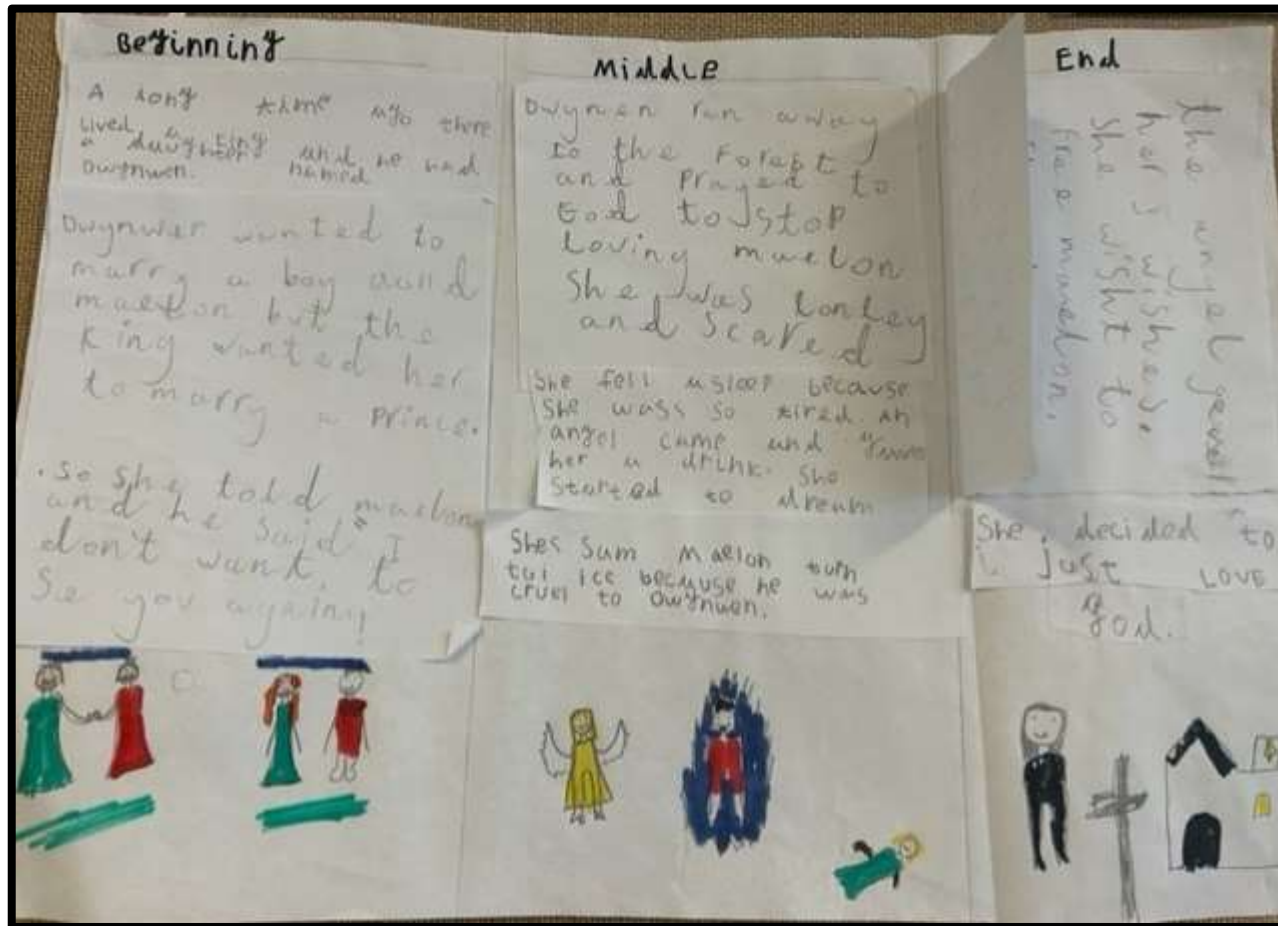 Beginning
A long time ago there
lived a king and he had
a daughter named
Dwynwen.
Dwynwen wanted to
marry a boy
maelon but the
King wanted her
to marry a prince.
. So she told maelon
and he said " I
don't want. to
Se you again!
Middle
Dwynen ran away
to the Forest
and Prayed to
God to stop
Loving maelon
She was Lonley
and Scared
She fell asleep because
She wass so tired. an
angel came and
her a drink. She
Started to dream
Shes Maelon turn
ice because he was
cruel to Dwynwen.
End
the angel
her 3 wishes.
She wisht to
Free maelon.
She decided to
just LOVE
god.